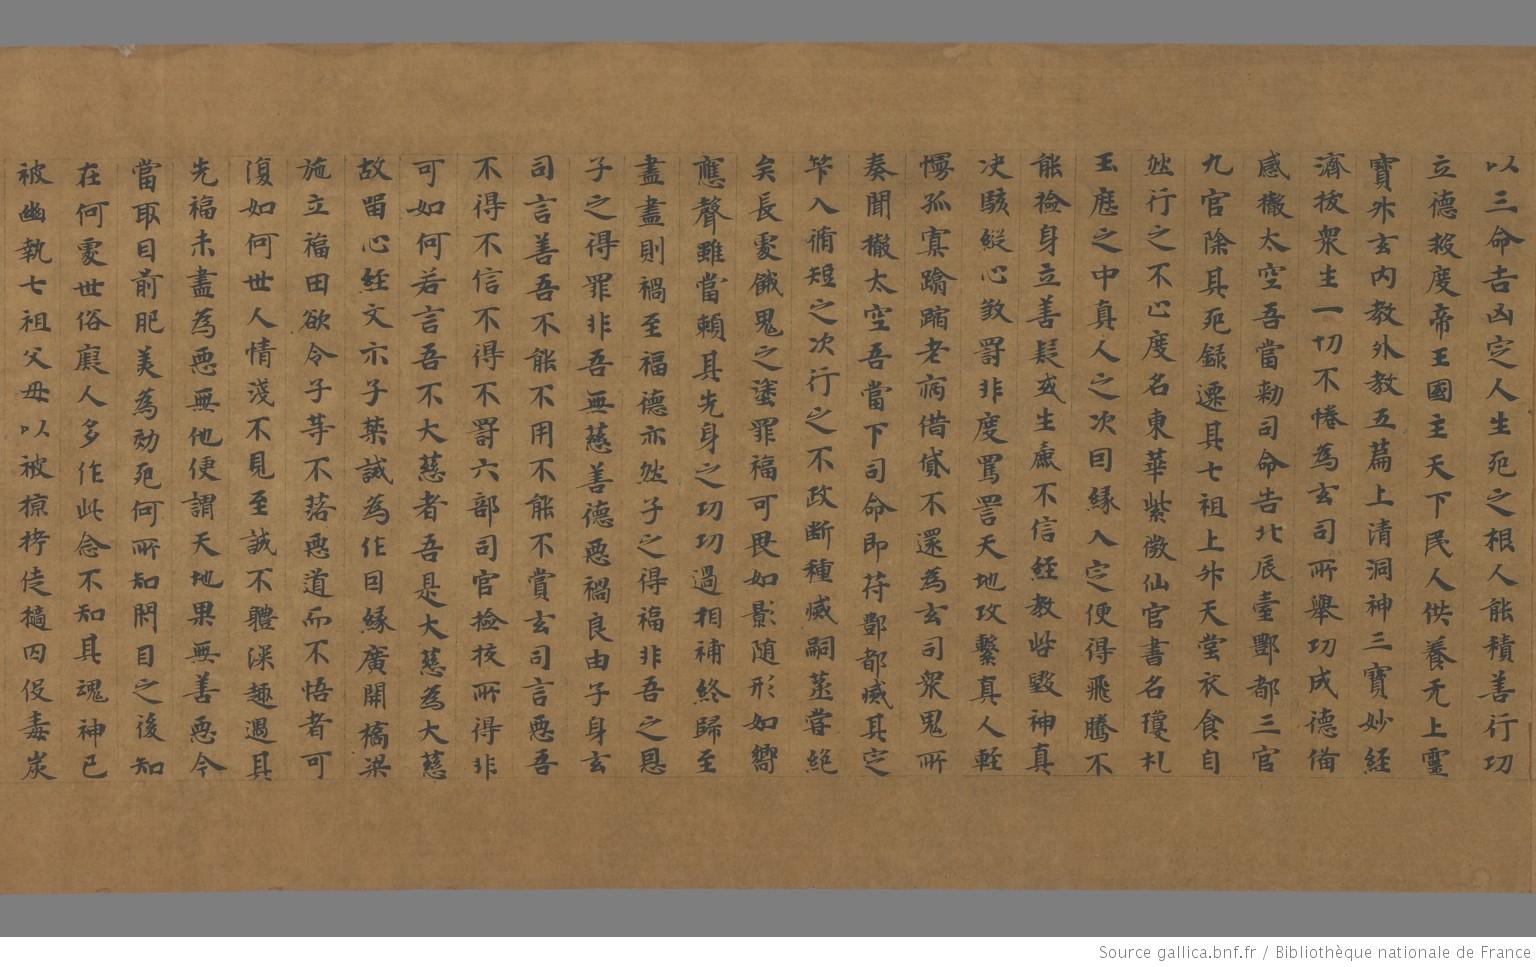 以三命吉凶定人生死之根人能積善行功
立德救度帝王國主天下民人供養无上靈
寶升玄內教外教五篇上清洞神三寶妙経
濟拔衆生一切不惓為玄司所舉功成德俻
感徹太空吾當勑司命告北辰臺酆都三官
九官除其死録遷其七祖上升天堂衣食自
然行之不心度名東華紫微仙官書名瓊札
玉歷之中真人之次因縁入定便得飛騰不
能撿身立善疑或生慮不信経教呰毀神真
决駭縱心欺罸非度罵詈天地攻繫真人輕
慢孤寡踰蹜老病借貸不還為玄司衆鬼所
奏聞徹太空吾當下司命即苻酆都感其定
筭入脩短之次行之不改斷種滅嗣蒸甞絶
矣長處餓鬼之塗罪福可畏如影随形如嚮
應聲雖當頼其先身之功功過相補終歸至
盡盡則禍至福德亦然子之得福非吾之恩
子之得罪非吾無慈善德惡禍良由子身玄
司言善吾不能不用不能不賞玄司言惡吾
不得不信不得不罸六部司官撿校所得非
可如何若言吾不大慈者吾是大慈為大慈
故留心経文示子禁誡為作因縁廣開橋梁
施立福田欲令子等不落惡道而不悟者可
復如何世人情淺不見至誠不體深趣遇其
先福未盡為惡無他便謂天地果無善惡今
當取目前肥羙為効死何所知閇目之後知
在何處世俗愚人多作此念不知其魂神已
被幽執七祖父母以被掠栲徒擿囚役毒炭